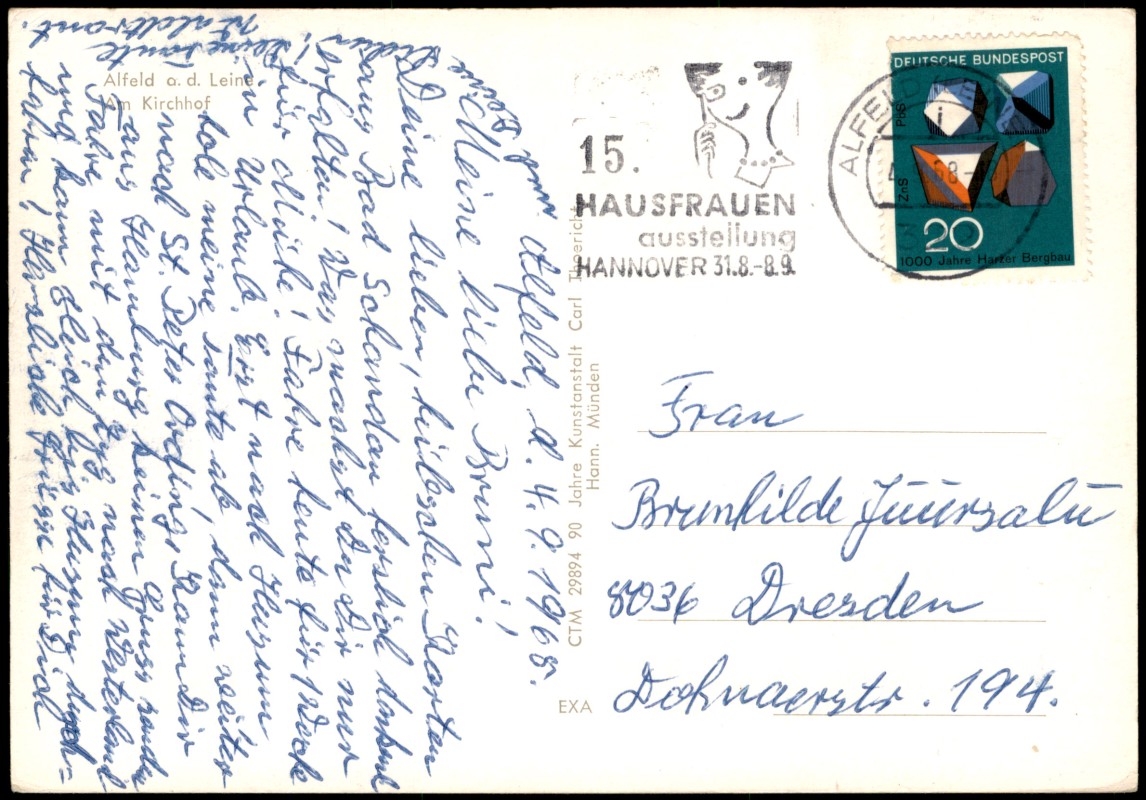 Alfeld a. d. Leine
Am Kirchhof
Alfeld, d. 4. 9. 1968.
Meine liebe Bruni!
Deine lieben, hübschen Karten
aus Bad Schandau herzlich dankend
erhalten! Was machst Du Dir nur
für Mühe! Fahre heute für 1 Woche
in Urlaub. Erst nach Husum
hole meine Tante ab, dann weiter
nach St. Peter Ording. Kann Dir
aus Hamburg keinen Gruss senden
Fahre mit dem Zug nach Westerland
und kann gleich bis Husum durch-
fahren! Herzliche Grüsse für Dich
Deine Tante
Waldtraut.
CTM 29894 90 Jahre Kunstanstalt Carl
Hann. Münden
EXA
15.
HAUSFRAUEN
ausstellung
HANNOVER 31.8.-8.9.
ALFELD
68
3
DEUTSCHE BUNDESPOST
PbS
ZnS
20
1000 Jahre Harzer Bergbau
Frau
Brunhilde
8036 Dresden
Dohnaerstr. 194.